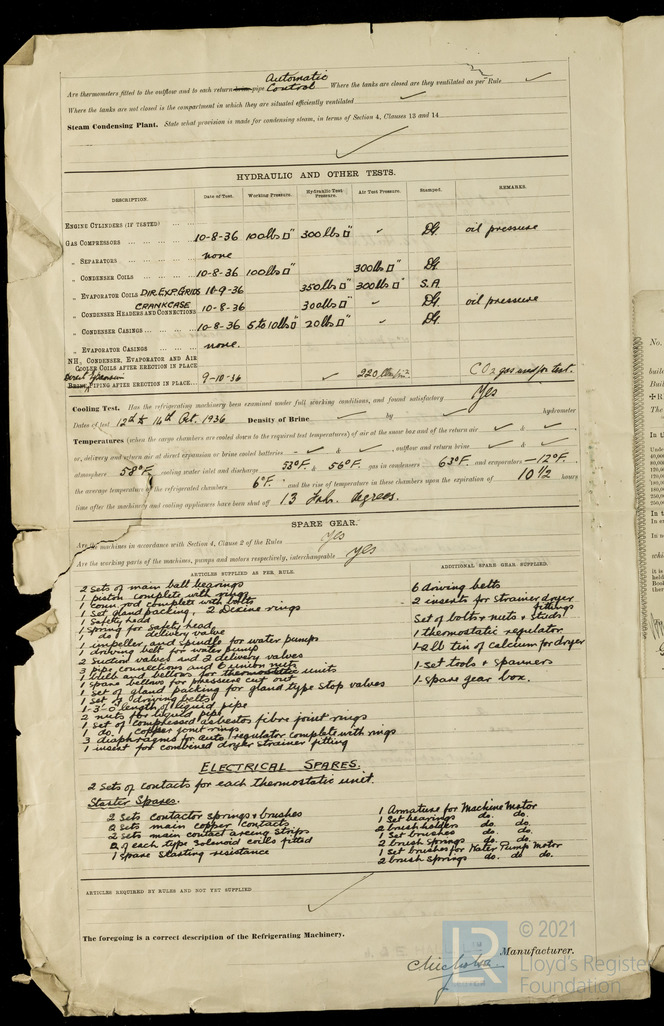 Automatic
Are thermometers fitted to the outflow and to each return brine pipe Control Where the tanks are closed are they ventilated as per Rule ✓
Where the tanks are not closed is the compartment in which they are situated efficiently ventilated ✓
Steam Condensing Plant. State what provision is made for condensing steam, in terms of Section 4, Clauses 13 and 14
✓
HYDRAULIC AND OTHER TESTS.
DESCRIPTION. Date of Test. Working Pressure. Hydraulic Test Pressure. Air Test Pressure. Stamped. REMARKS.
ENGINE CYLINDERS (IF TESTED)
GAS COMPRESSORS 10-8-36 100lbs □" 300lbs □" ✓ DG. oil pressure
„ SEPARATORS none
„ CONDENSER COILS 10-8-36 100lbs □" 300lbs □" DG.
„ EVAPORATOR COILS DIR. EXP. GRIDS 18-9-36 350lbs □" 300lbs □" S.A
CRANKCASE
„ CONDENSER HEADERS AND CONNECTIONS 10-8-36 300lbs □" ✓ DG. oil pressure
„ CONDENSER CASINGS 10-8-36 5 to 10lbs □" 20lbs □" ✓ DG.
„ EVAPORATOR CASINGS none.
NH3 CONDENSER, EVAPORATOR AND AIR
COOLER COILS AFTER ERECTION IN PLACE
Direct Expansion
BRINE PIPING AFTER ERECTION IN PLACE 9-10-36 ✓ 220 lbs/in² CO2 gas used for test.
Cooling Test. Has the refrigerating machinery been examined under full working conditions, and found satisfactory Yes
Dates of test 12th & 14th Oct. 1936 Density of Brine ✓ by ✓ hydrometer
Temperatures (when the cargo chambers are cooled down to the required test temperatures) of air at the snow box and of the return air ✓ & ✓
or, delivery and return air at direct expansion or brine cooled batteries - ✓ & ✓, outflow and return brine ✓ & ✓
atmosphere 58°F. cooling water inlet and discharge 53°F. & 56°F. gas in condensers 63°F. and evaporators -12°F.
the average temperature of the refrigerated chambers 6°F. and the rise of temperature in these chambers upon the expiration of 10 1/2 hours
time after the machinery and cooling appliances have been shut off 13 Fah. degrees.
SPARE GEAR.
Are the machines in accordance with Section 4, Clause 2 of the Rules yes
Are the working parts of the machines, pumps and motors respectively, interchangeable yes
ARTICLES SUPPLIED AS PER RULE. ADDITIONAL SPARE GEAR SUPPLIED.
2 sets of main ball bearings
1 piston complete with rings
1 conn rod complete with bolts
1 set gland packing, 2 Decine rings
1 safety head
1 spring for safety head
1 do. delivery valve
1 impeller and spindle for water pumps
1 driving belt for water pump
2 suction valves and 2 delivery valves
3 pipe connections and 6 union nuts
1 bulb and bellows for thermostatic units
1 spare bellows for pressure cut out
1 set of gland packing for gland type stop valves
1 set of driving belts
1-3'-0 length of liquid pipe
2 nuts for liquid pipe
1 set of compressed asbestos fibre joint rings
1 do. copper joint rings
3 diaphragms for auto regulator complete with rings
1 insert for combined dryer strainer fitting
6 driving belts
2 inserts for strainer dryer
fittings
Set of bolts & nuts & studs
1 thermostatic regulator
1-2lb tin of calcium for dryer
1-set tools & spanners
1-spare gear box.
ELECTRICAL SPARES.
2 sets of contacts for each thermostatic unit.
Starter Spares.
2 sets contactor springs & brushes
2 sets main copper contacts
2 sets main contact arcing strips
2 of each type solenoid coils fitted
1 spare starting resistance
1 Armature for Machine Motor
1 set bearings do. do.
2 brush holders do. do.
1 set brushes do. do.
2 brush springs do. do.
1 set brushes for Water Pump Motor
2 brush springs do. do. do.
ARTICLES REQUIRED BY RULES AND NOT YET SUPPLIED
✓
The foregoing is a correct description of the Refrigerating Machinery.
Manufacturer.
© 2021
Lloyd's Register
Foundation